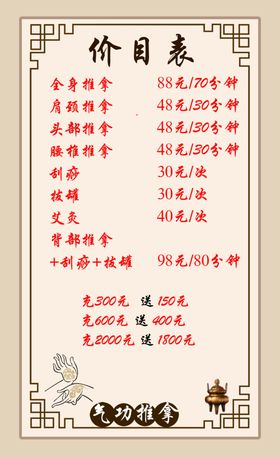 价目表
全身推拿 88元/70分钟
肩颈推拿 48元/30分钟
头部推拿 48元/30分钟
腰椎推拿 48元/30分钟
刮痧 30元/次
拔罐 30元/次
艾灸 40元/次
背部推拿
+刮痧+拔罐 98元/80分钟
充300元 送150元
充600元 送400元
充2000元 送1800元
气功推拿